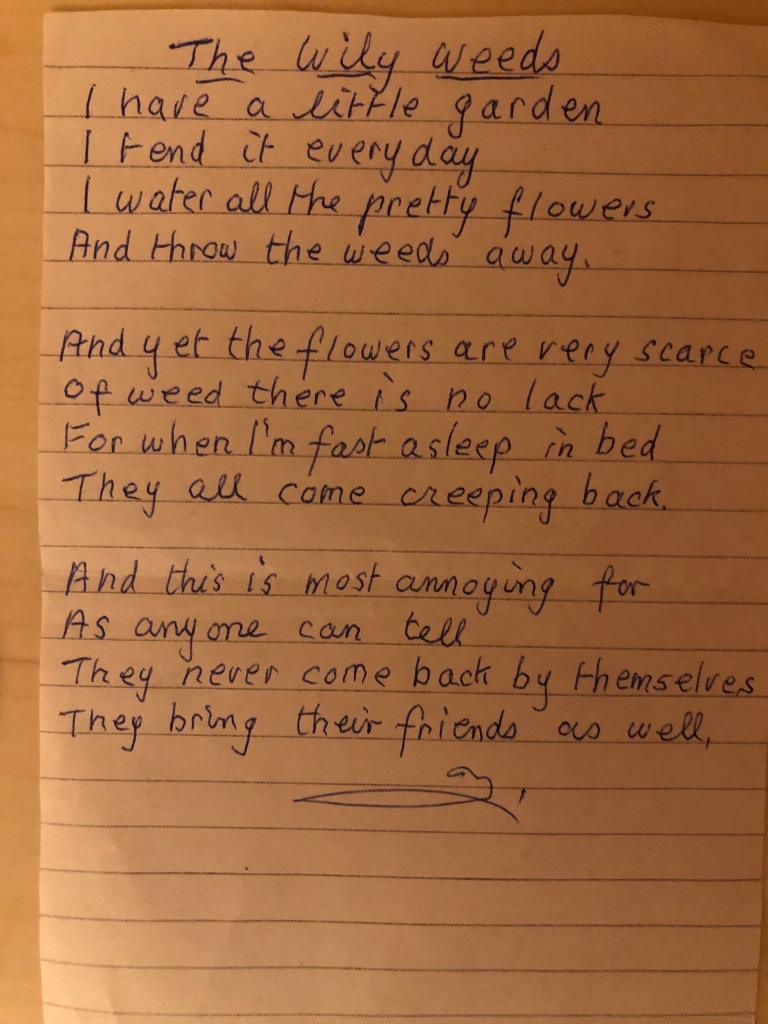 The Wily Weeds
I have a little garden
I tend it everyday
I water all the pretty flowers
And throw the weeds away.
And yet the flowers are very scarce
Of weed there is no lack
For when I'm fast asleep in bed
They all come creeping back.
And this is most annoying for
As anyone can tell
They never come back by themselves
They bring their friends as well,